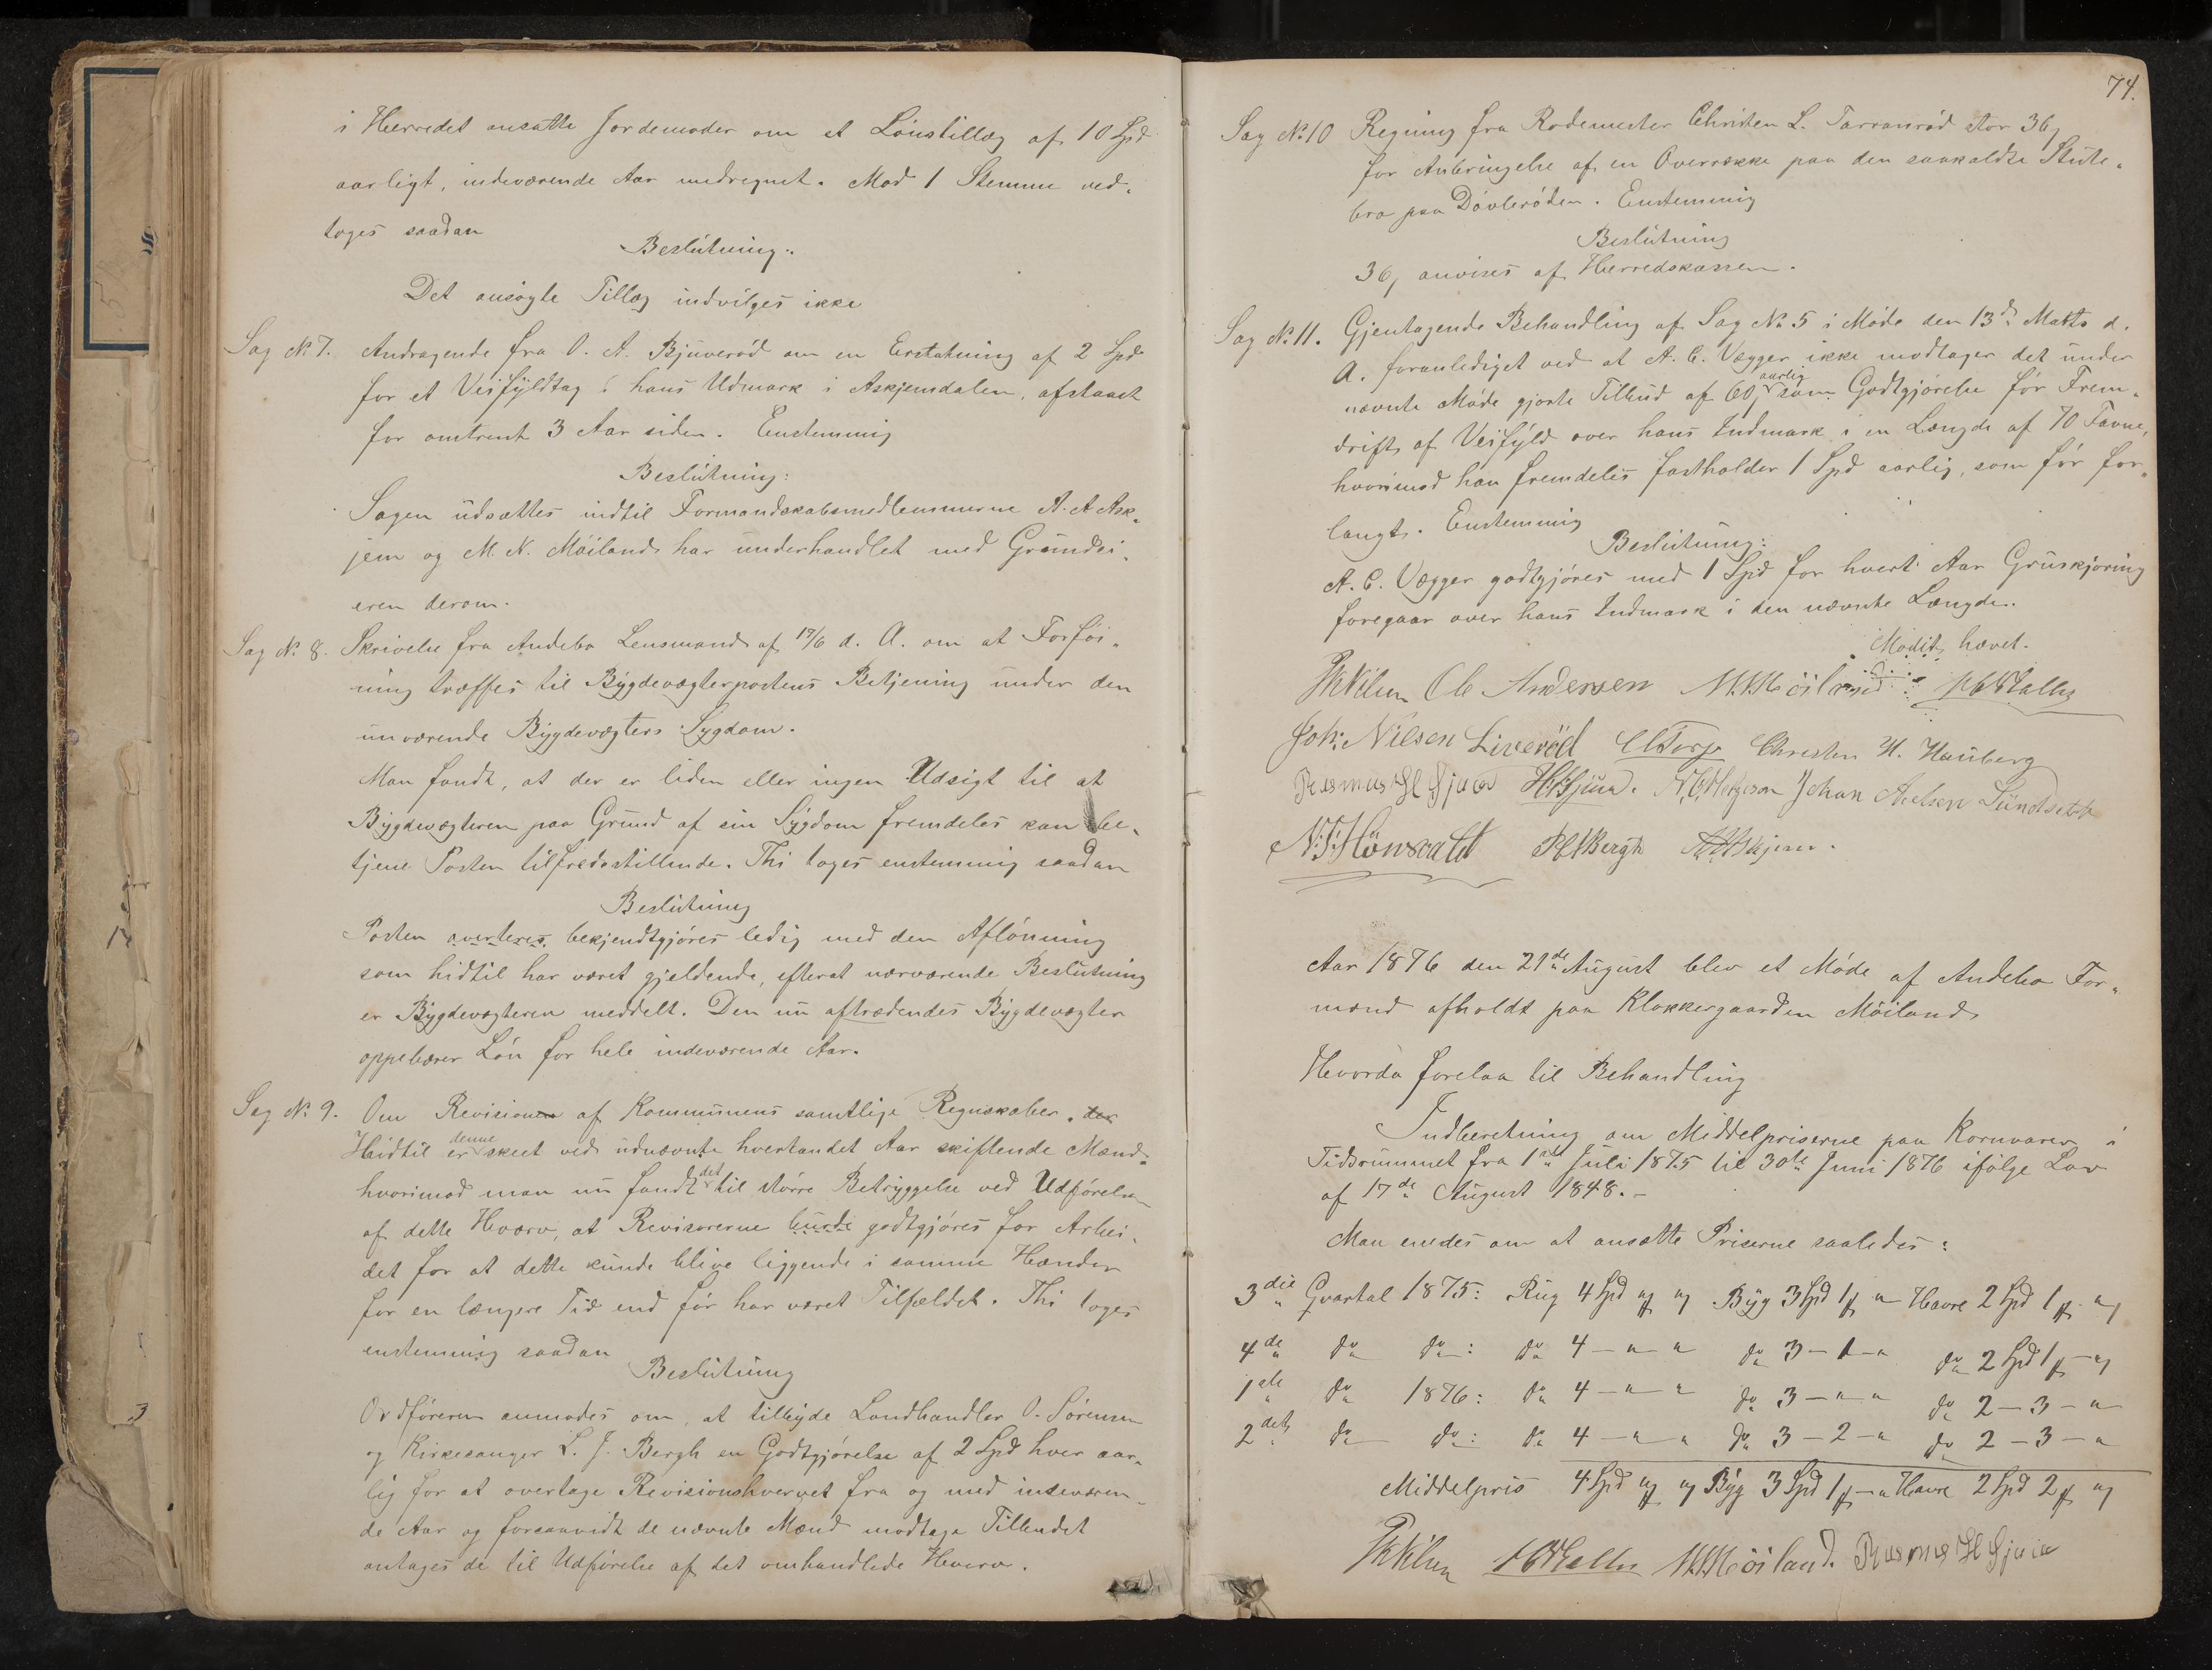 i Herredet ansatte Jordemoder om et Lönstillæg af 10 Spd
aarligt, indeværende Aar medregnet. Mod 1 Stemme ved-
toges saadan
Beslutning:
Det ansøgte Tillæg indvilges ikke
Sag No 7. Andragende fra O. A. Bjuerød om en Erstatning af 2 Spd
for et Veifyldtag i hans Udmark i Askjemdalen, afstaaet
for omtrent 3 Aar siden. Enstemmig
Beslutning:
Sagen udsættes indtil Formandskabsmedlemmerne A. A. Ask-
jem og M. N. Möiland har underhandlet med Grundei-
eren derom.
Sag No 8. Skrivelse fra Andebo Lensmand af 17/6 d. A. om at Forföi-
ning træffes til Bygdevægterpostens Betjening under den
nuværende Bygdevægters Sygdom.
Man fandt, at der er liden eller ingen Udsigt til at
Bygdevægteren paa Grund af sin Sygdom fremdeles kan be-
tjene Posten tilfredsstillende. Thi toges enstemmig saadan
Beslutning
Posten averteres bekjendtgjöres ledig med den Aflönning
som hidtil har været gjeldende, efterat nærværende Beslutning
er Bygdevægteren meddelt. Den nu aftrædendes Bygdevægter
oppebærer Lön for hele indeværende Aar.
Sag No 9. Om Revisionen af Kommunens samtlige Regnskaber. der
Hidtil er denne skeet ved udnævnte hvertandet Aar skiftende Mænd
hvorimod man nu fandt det til större Betryggelse ved Udförelsen
af dette Hværv, at Revisorerne burde godtgjöres for Arbei-
det for at dette kunde blive liggende i samme Hænder
for en længere Tid end för har været Tilfældet. Thi toges
enstemmig saadan
Beslutning
Ordföreren anmodes om, at tilbyde Landhandler O. Sörensen
og Kirkesanger L. J. Bergh en Godtgjörelse af 2 Spd hver aar-
lig for at overtage Revisionshvervet fra og med indeværen-
de Aar og forsaavidt de nævnte Mænd modtage Tilbudet
antages de til Udförelse af det omhandlede Hværv.
74.
Sag No 10 Regning fra Rodemester Christen L. Taranröd stor 36
for Anbringelse af en Overrække paa den saakaldte Stute-
bro paa Dövleröden. Enstemmig
Beslutning
36 anvises af Herredskassen.
Sag No 11. Gjentagende Behandling af Sag No 5 i Möde den 13de Marts d.
A. foranlediget ved at A. C. Vegger ikke modtager det under
nævnte Möde gjorte Tilbud af 60 aarlig som Godtgjörelse för Frem-
drift af Veifyld over hans Indmark i en Længde af 70 Favne,
hvorimod han fremdeles fastholder 1 Spd aarlig, som för for-
langt. Enstemmig
Beslutning:
A. C. Vegger godtgjöres med 1 Spd for hvert Aar Gruskjöring
foregaar over hans Indmark i den nævnte Længde.
Mödet hævet.
Ole Andersen M. N. Möiland
Joh: Nilsen Liveröd Christen H. Hauberg
Rasmus H Gjua Johan Axelsen Sundseth
LJBergh AAAskjem.
Aar 1876 den 21de August blev et Möde af Andebo For-
mænd afholdt paa Klokkergaarden Möiland
Hvorda forelaa til Behandling
Indberetning om Middelpriserne paa Kornvarer i
Tidsrummet fra 1ste Juli 1875 til 30te Juni 1876 ifölge Lov
af 17de August 1848. -
Man enedes om at ansætte Priserne saaledes:
3die Qvartal 1875: Rug 4 Spd " " Byg 3 Spd 1 " Havre 2 Spd 1 "
4de do do: do 4 - " " do 3 - 1 - " do 2 Spd 1 "
1ste do 1876: do 4 - " " do 3 - " " do 2 - 3 - "
2det do do: do 4 - " " do 3 - 2 - " do 2 - 3 - "
Middelpris 4 Spd " " Byg 3 Spd 1 - " Havre 2 Spd 2 "
M. N. Möiland. Rasmus H Gjua